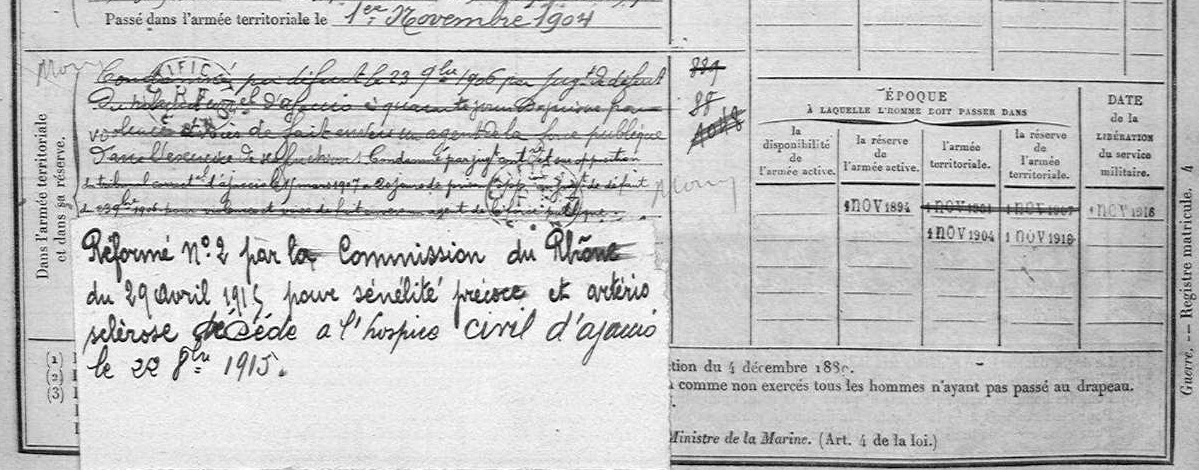 Passé dans l'armée territoriale le 1er Novembre 1904
Dans l'armée territoriale
et dans sa réserve.
par défaut le 23 9bre 1906 par jugt de défaut
d'ajaccio à quarante jours de prison pour
violences et voies de fait envers un agent de la force publique
dans l'exercice de ses fonctions. Condamné par jugt sur opposition
du tribunal correctel d'ajaccio le 15 mars 1907 a 20 jours de prison jugt de défaut
du 23 9bre 1906 pour violences et voies de fait envers un agent de la force publique.
889
88
Réformé N°.2 par la Commission du Rhône
du 29 avril 1915 pour sénélité précoce et artério
sclérose décédé a l'hospice civil d'ajaccio
le 22 8bre 1915.
ÉPOQUE
À LAQUELLE L'HOMME DOIT PASSER DANS
DATE
de la
LIBÉRATION
du service
militaire.
la
disponibilité
de
l'armée active.
la réserve
de
l'armée active.
l'armée
territoriale.
la réserve
de
l'armée
territoriale.
1 NOV 1894 1 NOV 1901 1 NOV 1907 1 NOV 1918
1 NOV 1904 1 NOV 1918
(1)
(2)
(3)
tion du 4 décembre 1889.
comme non exercés tous les hommes n'ayant pas passé au drapeau.
Ministre de la Marine. (Art. 4 de la loi.)
Guerre. — Registre matricule. 4